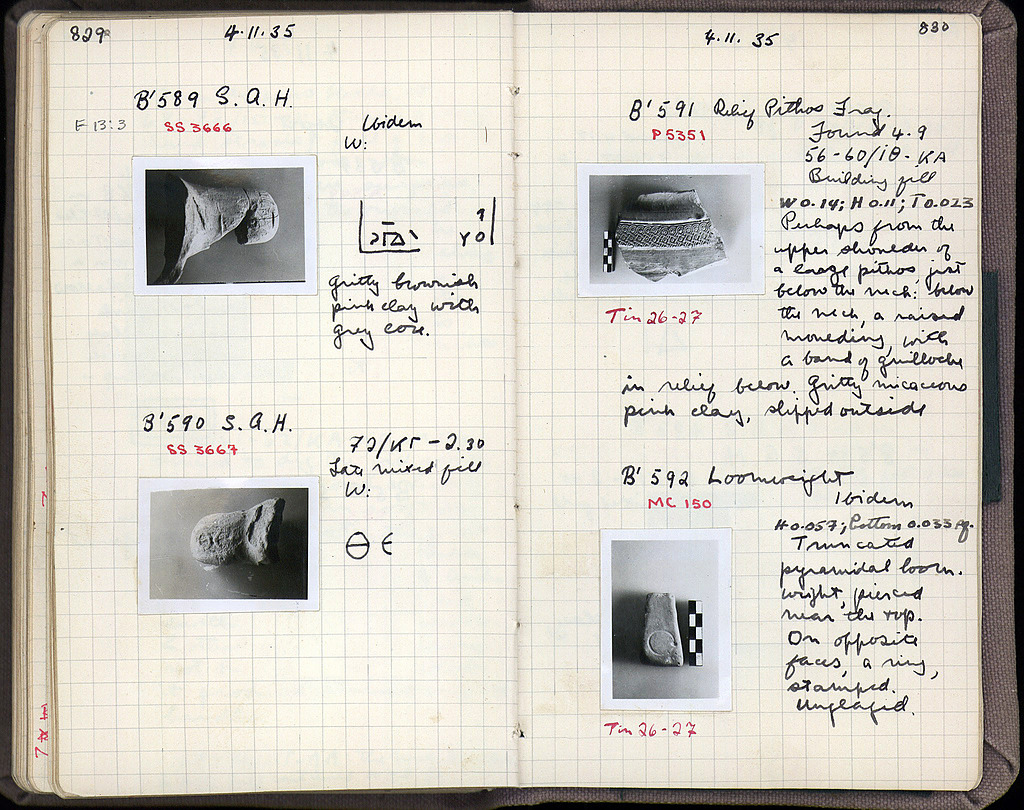 829
4.11.35
B'589 S.A.H.
E 13:3
SS 3666
Ibidem
W:
gritty brownish
pink clay with
grey core.
B'590 S.A.H.
SS 3667
72/ΚΓ - 2.30
Late mixed fill
W:
Θ Ε
7
830
4.11.35
B'591 Relief Pithos Frag.
P 5351
Found 4.9
56-60/ΙΘ-ΚΑ
Building fill
W 0.14; H 0.11; T 0.023
Perhaps from the
upper shoulder of
a large pithos, just
below the neck: below
the neck, a raised
moulding, with
a band of guilloche
in relief below. Gritty micaceous
pink clay, slipped outside
Tin 26-27
B'592 Loomweight
MC 150
Ibidem
H 0.057; Bottom 0.033 sq.
Truncated
pyramidal loom-
weight, pierced
near the top.
On opposite
faces, a ring,
stamped.
Unglazed.
Tin 26-27